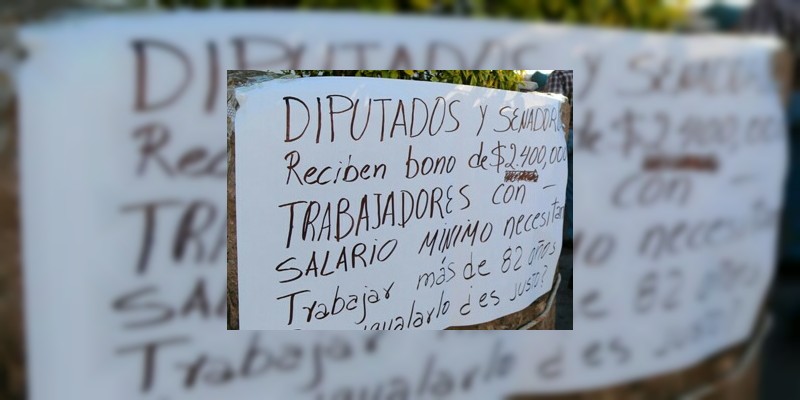 DIPUTADOS Y SENADORES
Reciben bono de $2.400,000
TRABAJADORES con -
SALARIO MINIMO necesitan
Trabajar más de 82 años
igualarlo ¿es justo?